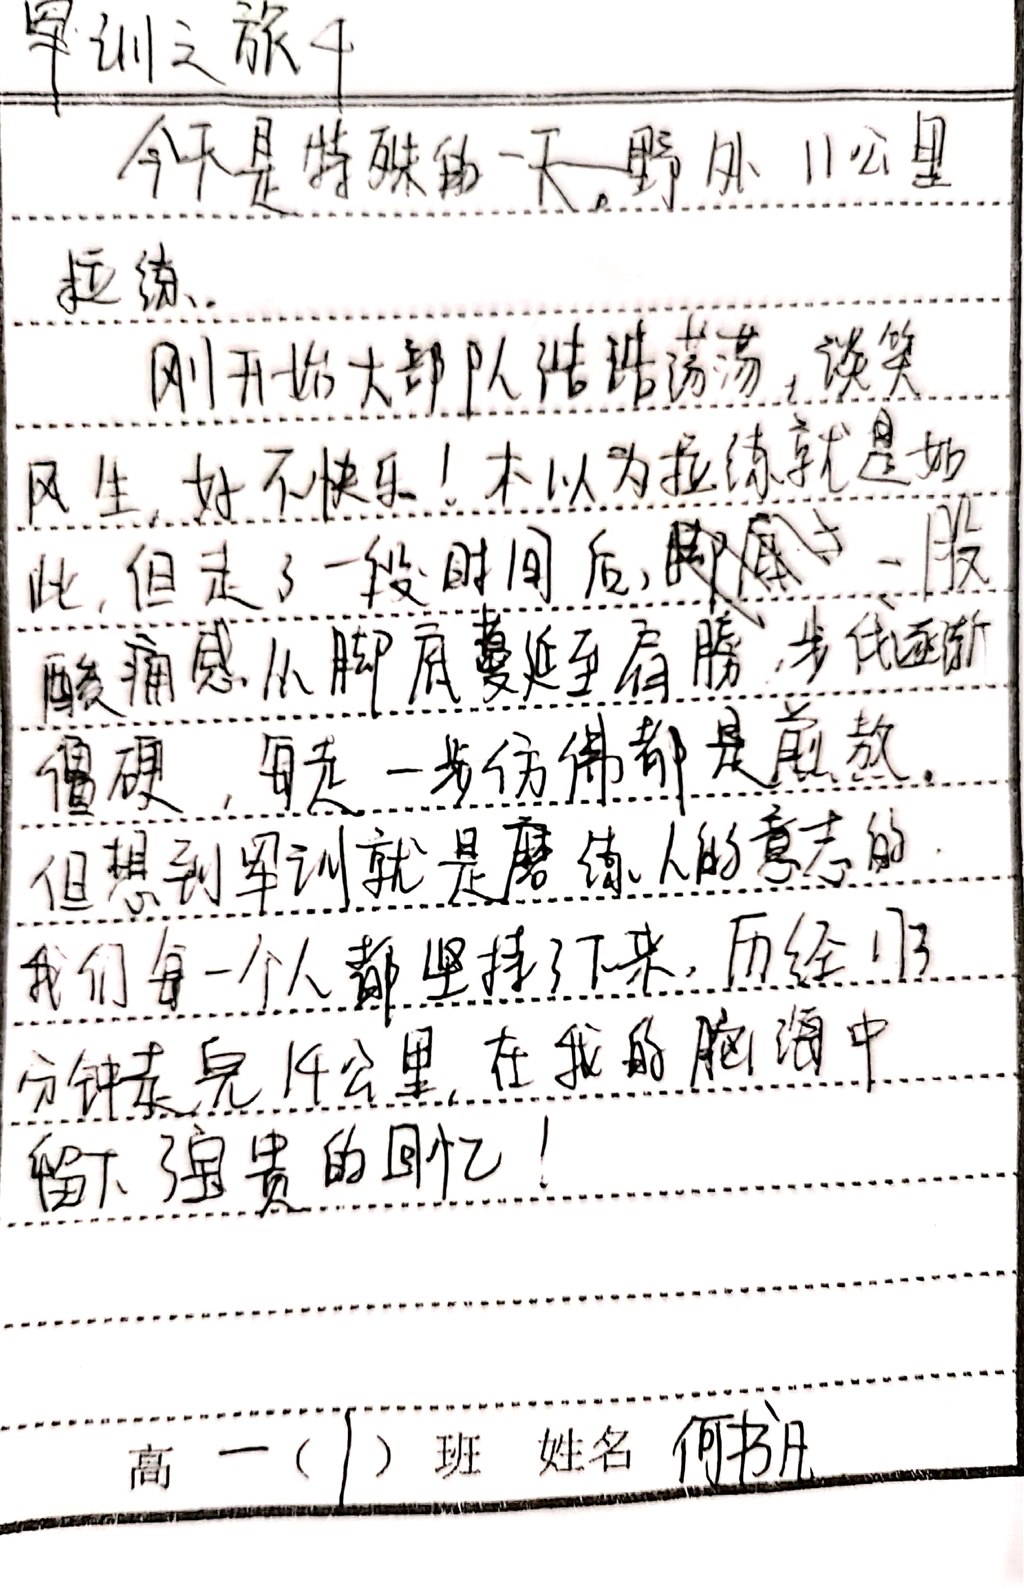 军训之旅4
今天是特殊的一天。野外11公里
拉练.
刚开始大部队浩浩荡荡,谈笑
风生,好不快乐！本以为拉练就是如
此,但走了一段时间后,一股
酸痛感从脚底蔓延至肩膀,步伐逐渐
僵硬,每走一步仿佛都是煎熬.
但想到军训就是磨练人的意志的.
我们每一个人都坚持了下来.历经173
分钟走完14公里,在我的脑海中
留下了宝贵的回忆！
高一(1)班 姓名 何书凡